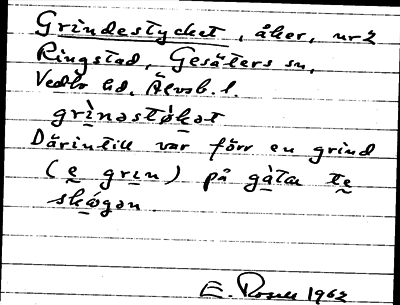 Grindestycket, åker, nr 2
Ringstad, Gesäters sn,
Vedbo hd, Älvsb. l.
grìnəstỳkət
Därintill var förr en grind
(e grɪn) på gàta te
skógən.
E. 1962